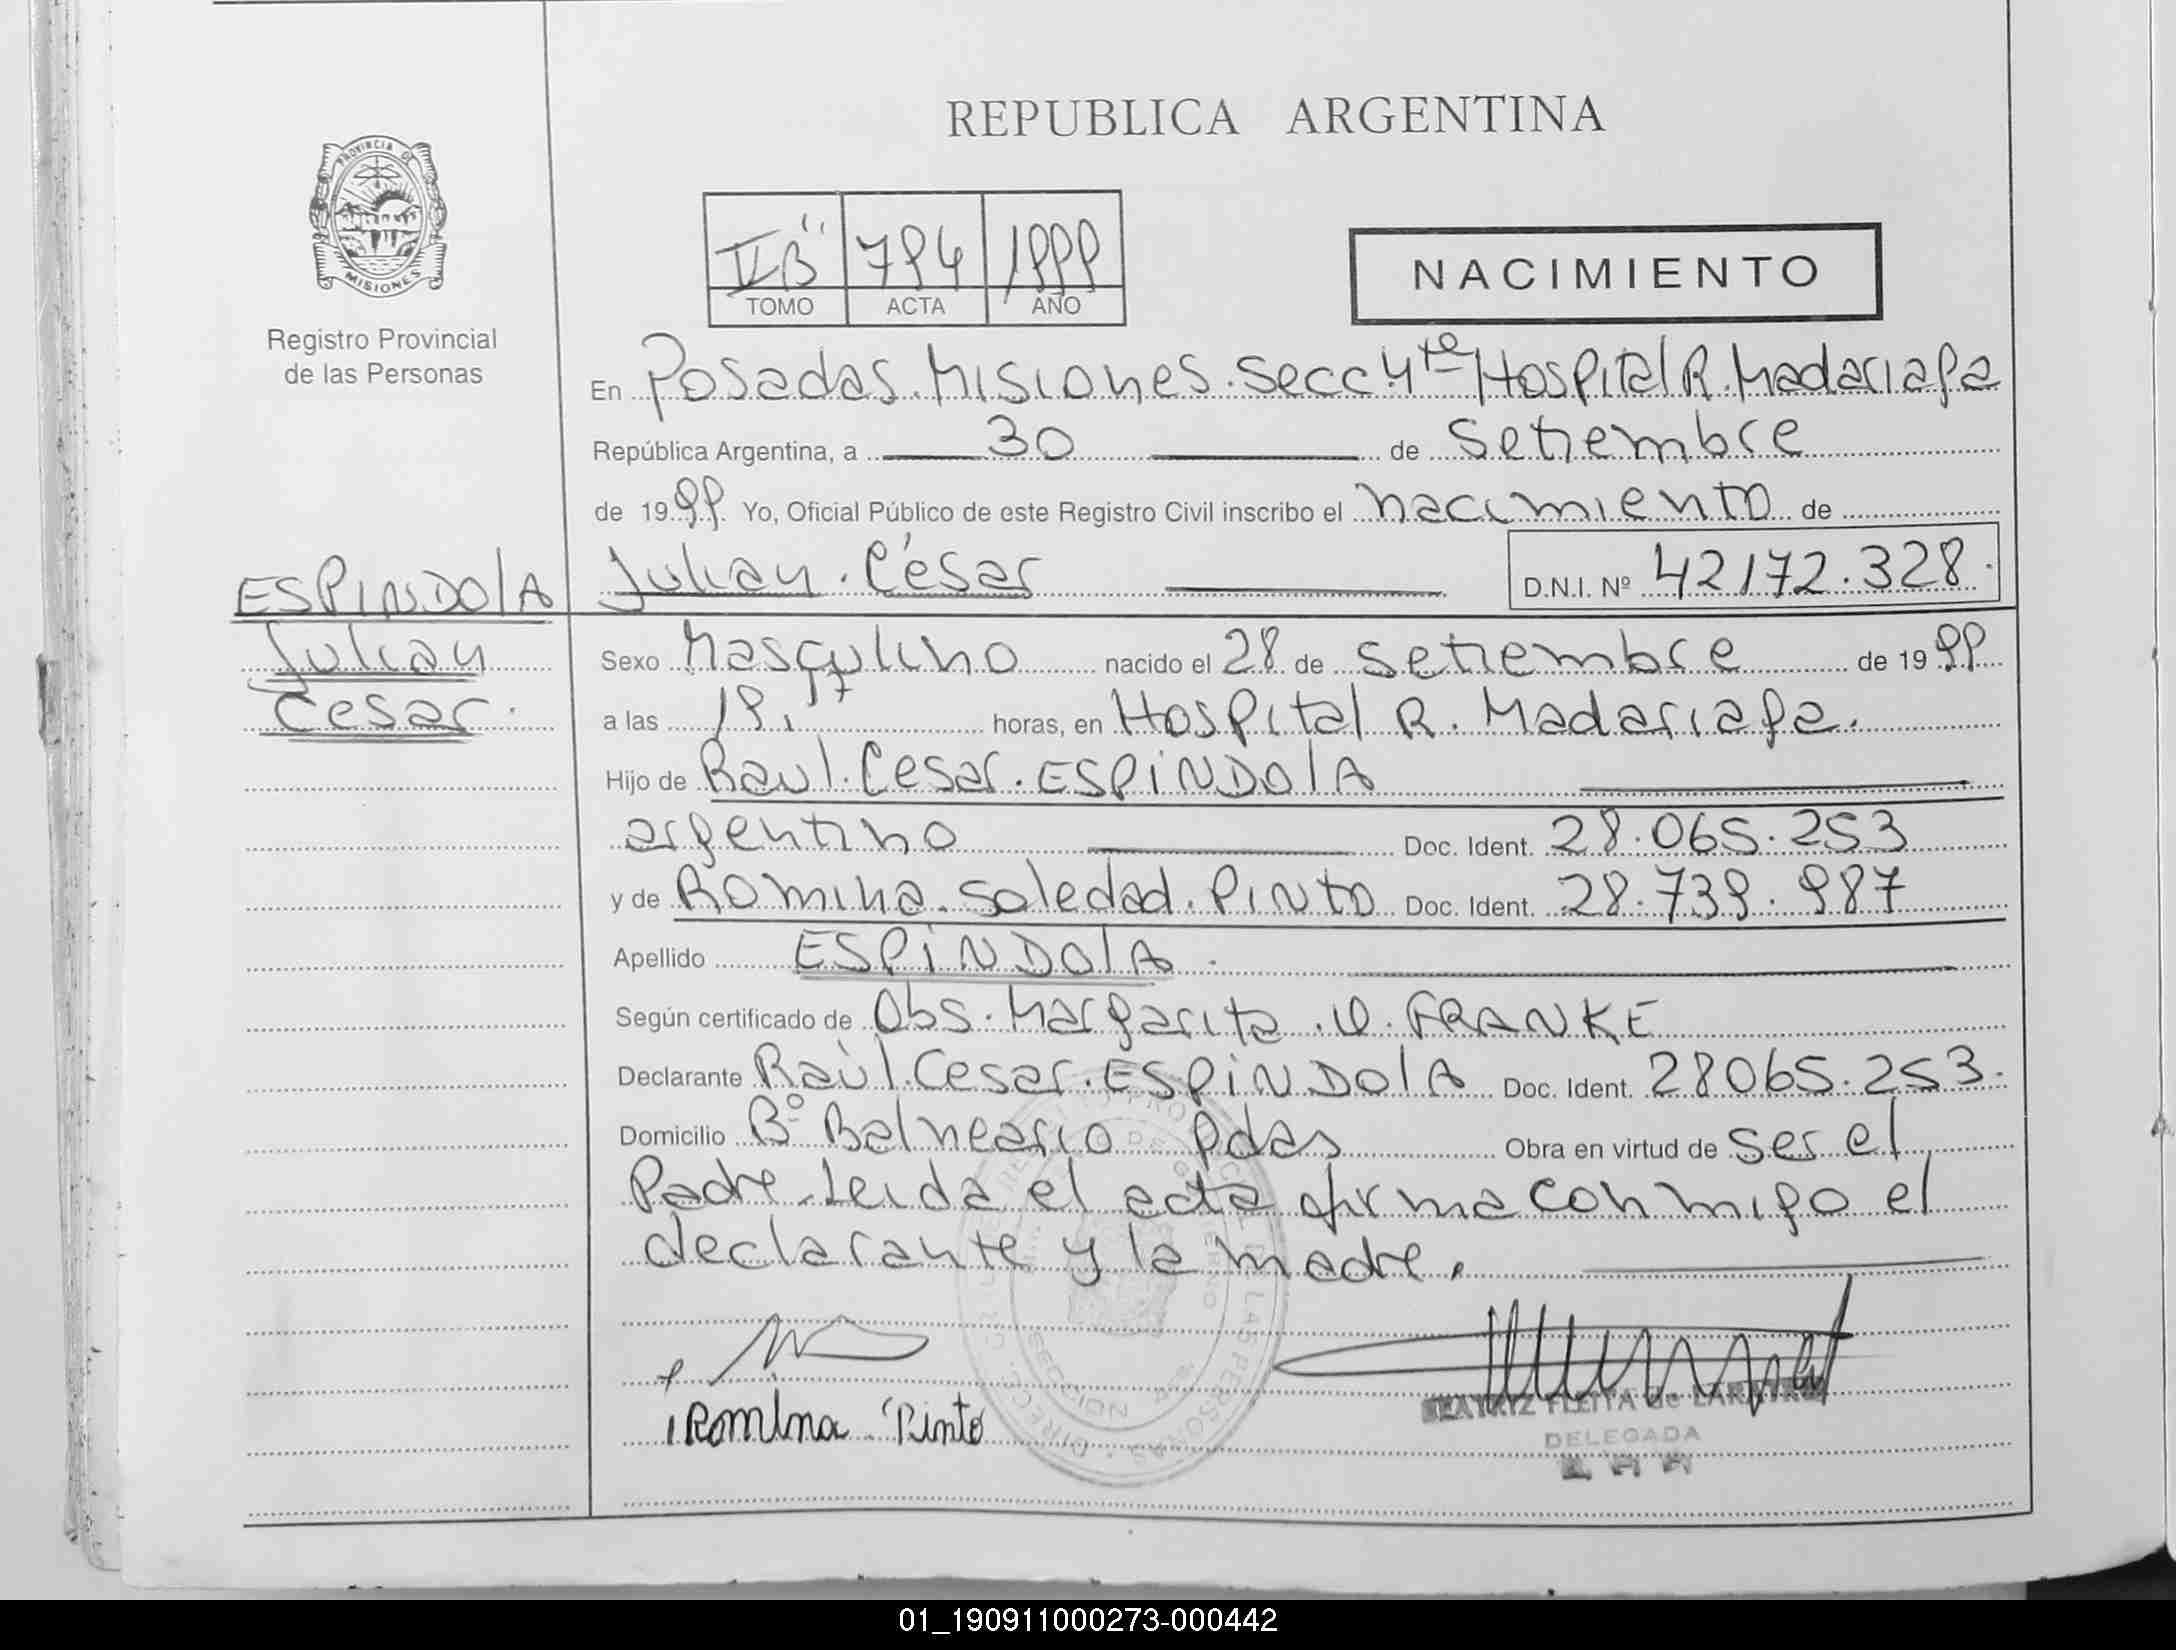 REPUBLICA ARGENTINA
PROVINCIA DE MISIONES
Registro Provincial
de las Personas
II "B" 794 1999
TOMO ACTA AÑO
NACIMIENTO
En Posadas. Misiones. Secc 4ta Hospital R. Madariaga
República Argentina, a 30 de Setiembre
de 1999 Yo, Oficial Público de este Registro Civil inscribo el nacimiento de
ESPINDOLA Julian. César D.N.I. Nº 42172.328.
Julian Sexo Masculino nacido el 28 de Setiembre de 1999
Cesar. a las 19,17 horas, en Hospital R. Madariaga.
Hijo de Raul. Cesar. ESPINDOLA
argentino Doc. Ident. 28.065.253
y de Romina. Soledad. PINTO Doc. Ident. 28.739.987
Apellido ESPINDOLA.
Según certificado de Obs. Margarita. FRANKE
Declarante Raúl. Cesar. ESPINDOLA Doc. Ident. 28065.253.
Domicilio Bº Balneario Pdas Obra en virtud de ser el
Padre. Leida el acta firma conmigo el
declarante y la madre.
Romina Pinto
BEATRIZ FLEITA de
DELEGADA
01_190911000273-000442